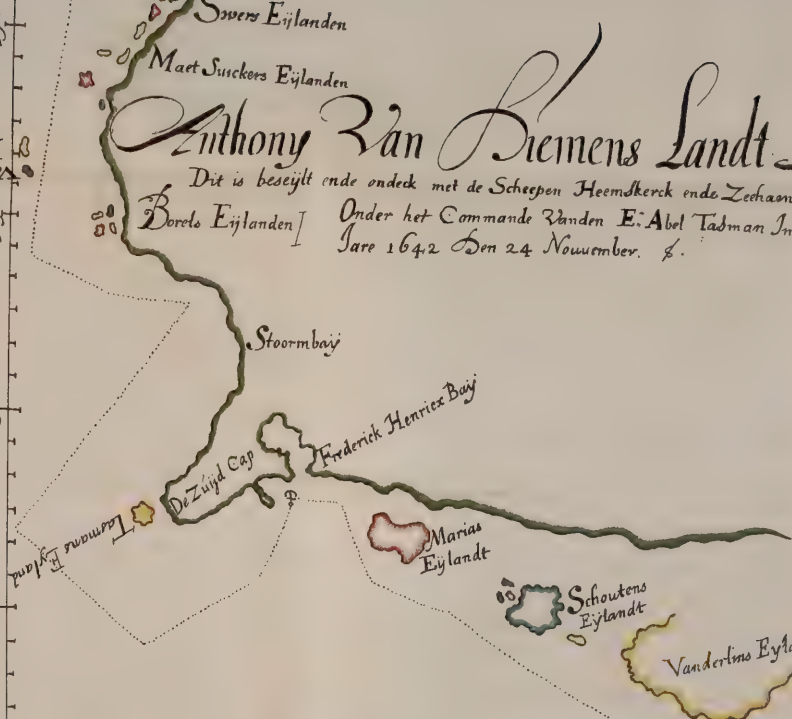 Swers Eijlanden
Maet Suickers Eijlanden
Anthony Van Diemens Landt
Dit is beseijlt ende ondeck met de Scheepen Heemskerck ende Zeehaen
Onder het Commande Vanden E: Abel Tasman In
Jare 1642 Den 24 Nouuember. &.
Borels Eijlanden
Stoormbaij
Frederick Henricx Baij
De Zúijd Cap
T Tasmans Eyland
Marias
Eijlandt
Schoutens
Eijlandt
Vanderlins Eyla